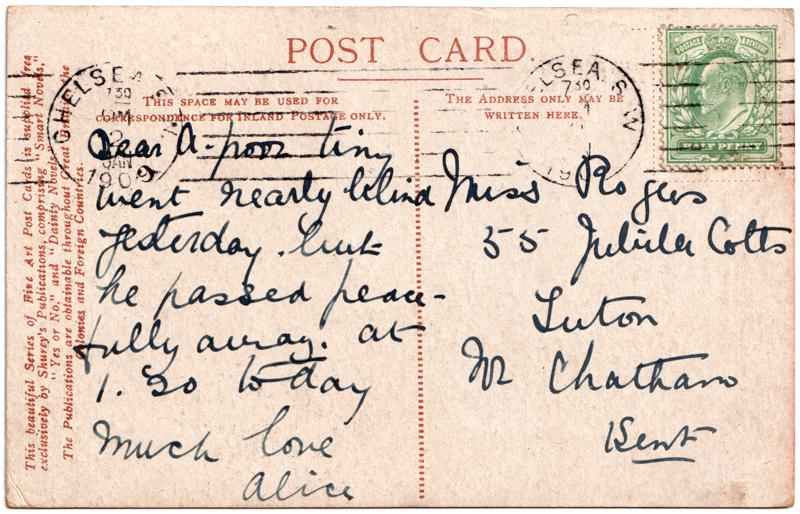 POST CARD.
THIS SPACE MAY BE USED FOR
CORRESPONDENCE FOR INLAND POSTAGE ONLY.
THE ADDRESS ONLY MAY BE
WRITTEN HERE.
CHELSEA S.W
730 PM
2
JAN
1909
CHELSEA S.W
730
190
POSTAGE & REVENUE
HALF PENNY
Dear A - poor tiny
went nearly blind
yesterday. but
he passed peace-
fully away. at
1.30 to day
Much love
Alice
Miss Rogers
55 Jubilee Cotts
Luton
Nr Chatham
Kent
This beautiful Series of Fine Art Post Cards is supplied free
exclusively by Shurey's Publications, comprising "Smart Novels,"
"Yes or No," and "Dainty Novels."
The Publications are obtainable throughout Great Britain, the
Colonies and Foreign Countries.